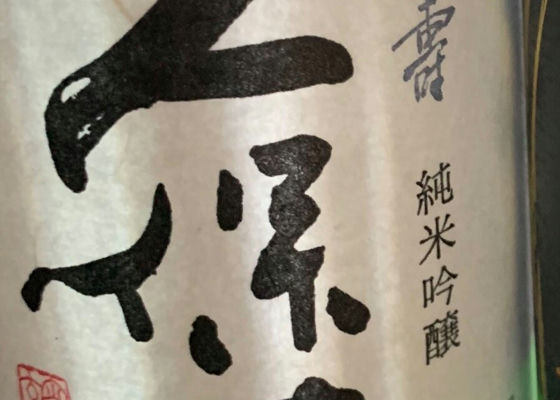 壽
純米吟醸
保